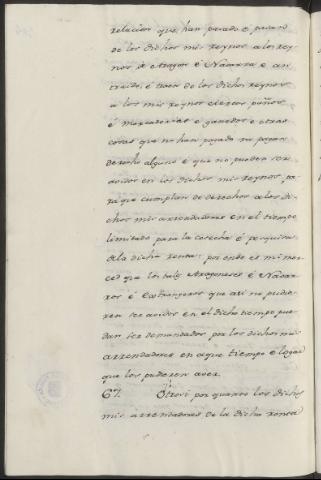 relacion que han pasado e pasan
de los dichos mis reynos a los rey
nos de Aragon é Navarra e an
traido, é traen de los dichos reynos
a los mis reynos ciertos paños
é mercaderias e ganados e otras
cosas que no han pagado nin pagan
derecho alguno é que no pueden ser
avidos en los dichos mis reynos, pa
ra que cumplan de derecho a los di
chos mis arrendadores en el tiempo
limitado para la cosecha é pesquisa
de la dicha renta: por ende es mi mer
ced que los tales Aragoneses é Navar
ros é Estrangeros que asi no pudie
ren ser avidos en el dicho tiempo pue
dan ser demandados por los dichos mis
arrendadores en aque tiempo e logar
que los pudieren aver.
67. Otrosi por quanto los dichos
mis arrendadores de la dicha renta